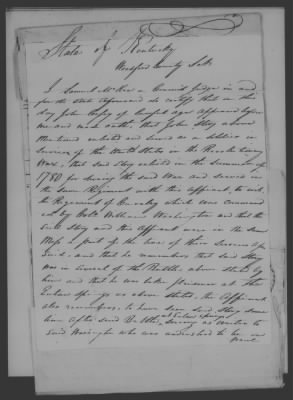 State of Kentucky
Woodford County Sct
I Samuel McKee a Circuit Judge in and
for the State aforesaid do certify that on this
day John of lawful age appeared before
me and made oath, that John Shoy above
Mentioned enlisted and served as a Soldier in
Service of the United States in the Revolutionary
War; that said Shoy enlisted in the Summer of
1780 for during the said War and served in
the Same Regiment with this affiant, to wit
the Regiment of Cavalry which was command
ed by Colo. William Washington and that the
said Shoy and this affiant were in the same
Mess a part of the time of their Service afore
said, and that he remembers that said Shoy
was in Several of the Battles, above stated by
him and that he was taken prisoner at the
Eutaw Springs as above stated, the affiant
also remembers, to have seen said Shoy some
time after said Battle, at Eutaw Springs
said Washington who was to be